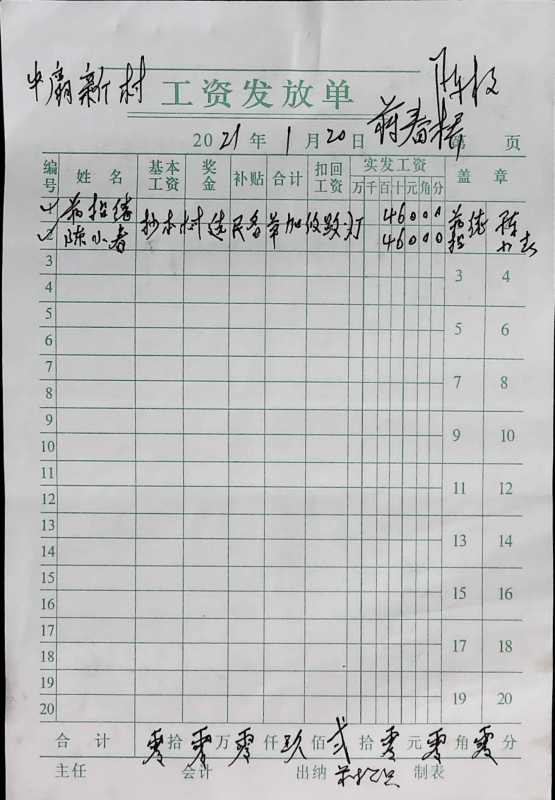 中扇新村
工资发放单
2021年1月20日 蒋春楊 第 页
编号 姓名 基本工资 奖金 补贴 合计 扣回工资 实发工资 盖章
万千百十元角分
1 抄本村选民名单加收路灯 46000
2 陈小春 46000 陈小春
3 3 4
4
5 5 6
6
7 7 8
8
9 9 10
10
11 11 12
12
13 13 14
14
15 15 16
16
17 17 18
18
19 19 20
20
合计 零拾零万零仟玖佰贰拾零元零角零分
主任 会计 出纳 制表